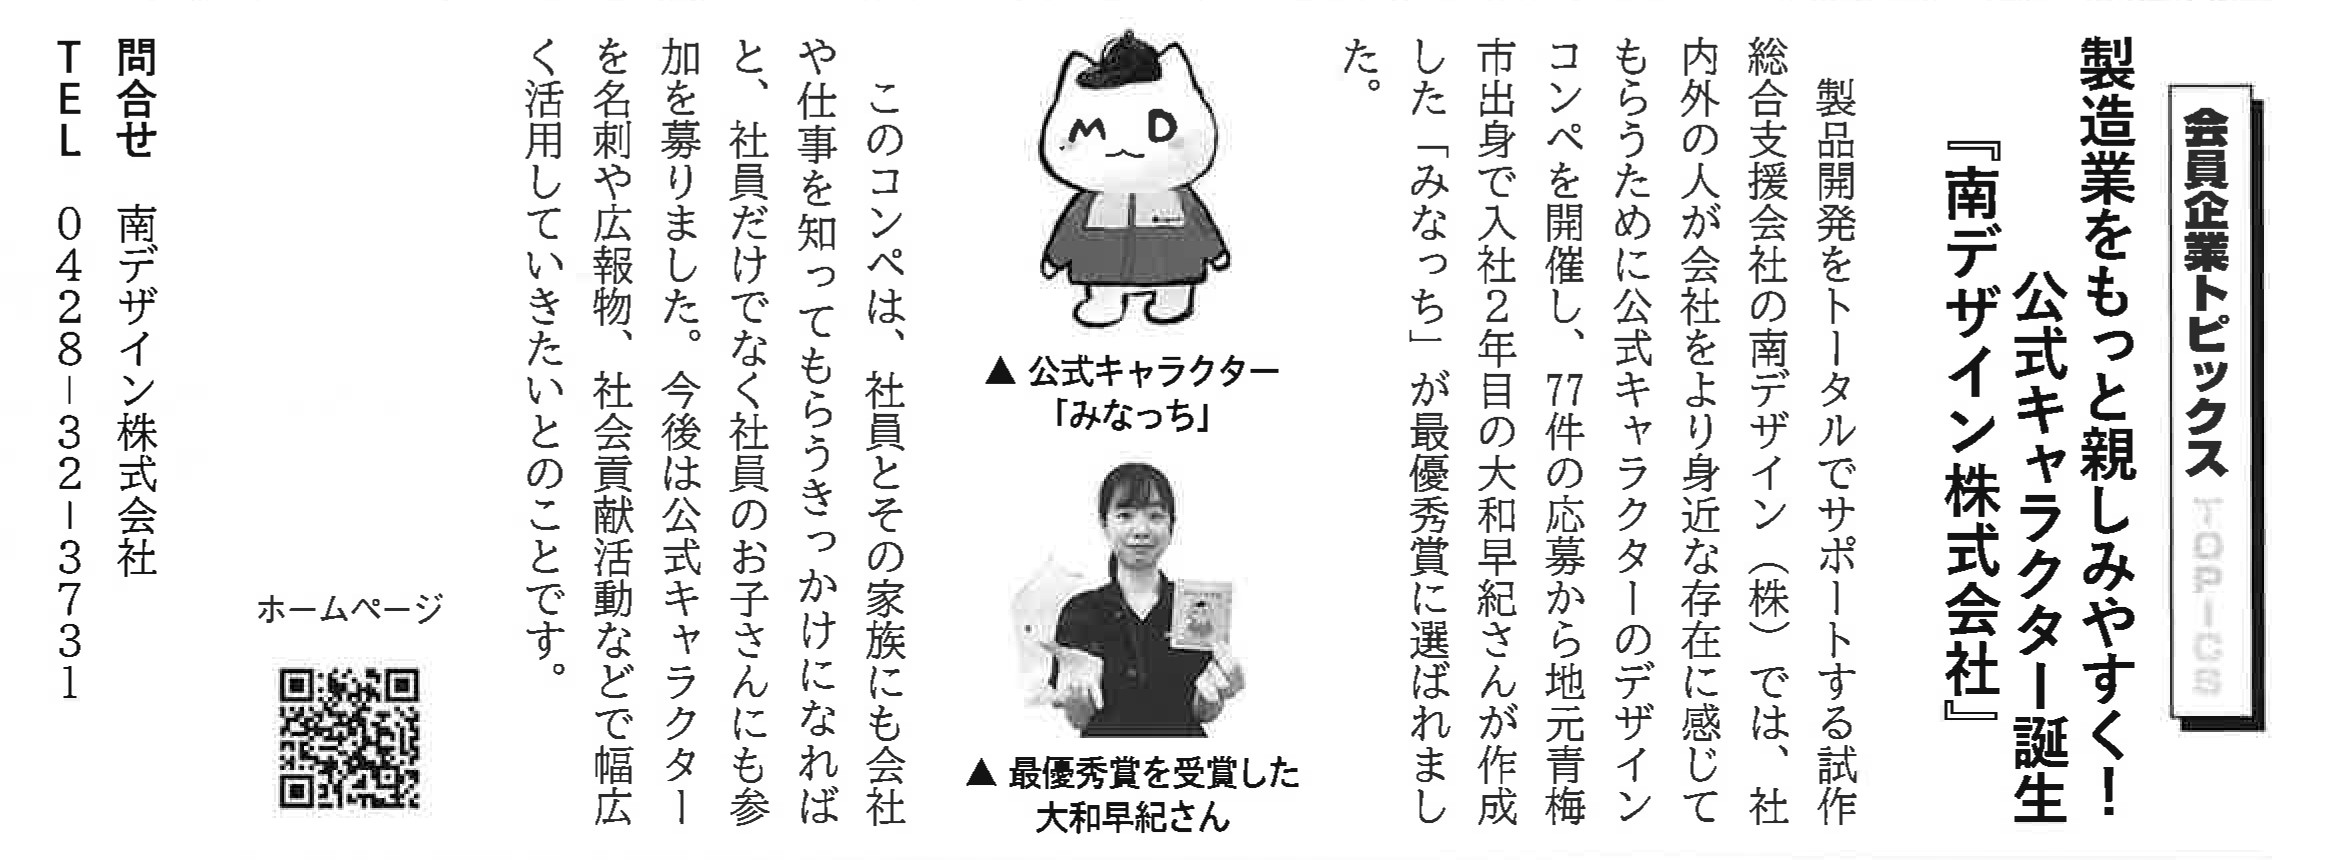 会員企業トピックス TOPICS
製造業をもっと親しみやすく！
公式キャラクター誕生
『南デザイン株式会社』
製品開発をトータルでサポートする試作
総合支援会社の南デザイン（株）では、社
内外の人が会社をより身近な存在に感じて
もらうために公式キャラクターのデザイン
コンペを開催し、77件の応募から地元青梅
市出身で入社2年目の大和早紀さんが作成
した「みなっち」が最優秀賞に選ばれまし
た。
M D
▲ 公式キャラクター
「みなっち」
▲ 最優秀賞を受賞した
大和早紀さん
このコンペは、社員とその家族にも会社
や仕事を知ってもらうきっかけになれば
と、社員だけでなく社員のお子さんにも参
加を募りました。今後は公式キャラクター
を名刺や広報物、社会貢献活動などで幅広
く活用していきたいとのことです。
ホームページ
問合せ 南デザイン株式会社
TEL 0428-32-3731